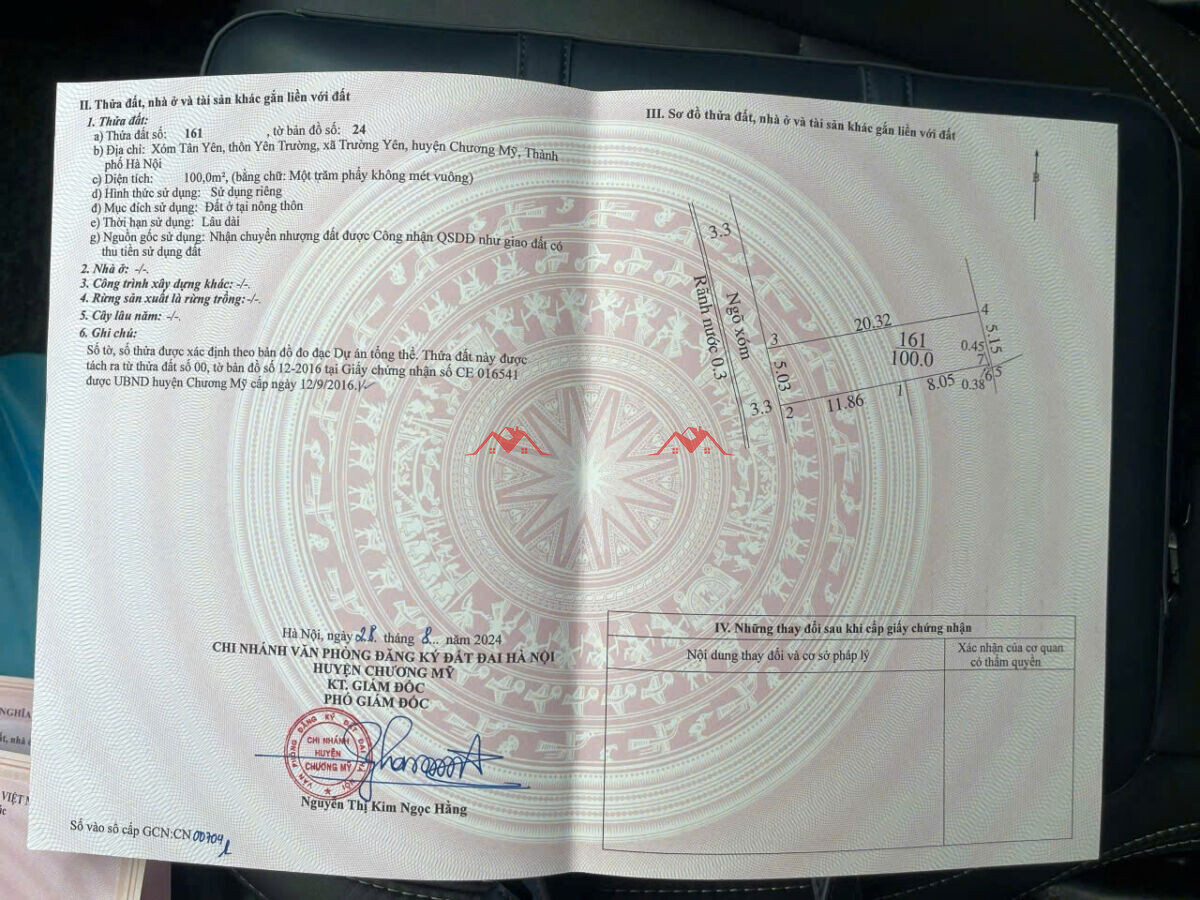 II. Thửa đất, nhà ở và tài sản khác gắn liền với đất
1. Thửa đất:
a) Thửa đất số: 161 , tờ bản đồ số: 24
b) Địa chỉ: Xóm Tân Yên, thôn Yên Trường, xã Trường Yên, huyện Chương Mỹ, Thành
phố Hà Nội
c) Diện tích: 100,0m², (bằng chữ: Một trăm phẩy không mét vuông)
d) Hình thức sử dụng: Sử dụng riêng
đ) Mục đích sử dụng: Đất ở tại nông thôn
e) Thời hạn sử dụng: Lâu dài
g) Nguồn gốc sử dụng: Nhận chuyển nhượng đất được Công nhận QSDĐ như giao đất có
thu tiền sử dụng đất
2. Nhà ở: -/-.
3. Công trình xây dựng khác: -/-.
4. Rừng sản xuất là rừng trồng: -/-.
5. Cây lâu năm: -/-.
6. Ghi chú:
Số tờ, số thửa được xác định theo bản đồ đo đạc Dự án tổng thể. Thửa đất này được
tách ra từ thửa đất số 00, tờ bản đồ số 12-2016 tại Giấy chứng nhận số CE 016541
được UBND huyện Chương Mỹ cấp ngày 12/9/2016.
Hà Nội, ngày 28 tháng 8 năm 2024
CHI NHÁNH VĂN PHÒNG ĐĂNG KÝ ĐẤT ĐAI HÀ NỘI
HUYỆN CHƯƠNG MỸ
KT. GIÁM ĐỐC
PHÓ GIÁM ĐỐC
VĂN PHÒNG ĐĂNG KÝ ĐẤT ĐAI HÀ NỘI
CHI NHÁNH
HUYỆN
CHƯƠNG MỸ
Nguyễn Thị Kim Ngọc Hằng
Số vào sổ cấp GCN:CN
III. Sơ đồ thửa đất, nhà ở và tài sản khác gắn liền với đất
B
3.3
Rãnh nước 0.3
Ngõ xóm
3
20.32
4
161
100.0
0.45
5.15
7
5.03
6
5
0.38
8.05
1
11.86
2
3.3
IV. Những thay đổi sau khi cấp giấy chứng nhận
Nội dung thay đổi và cơ sở pháp lý
Xác nhận của cơ quan
có thẩm quyền
NGHĨA
VIỆT